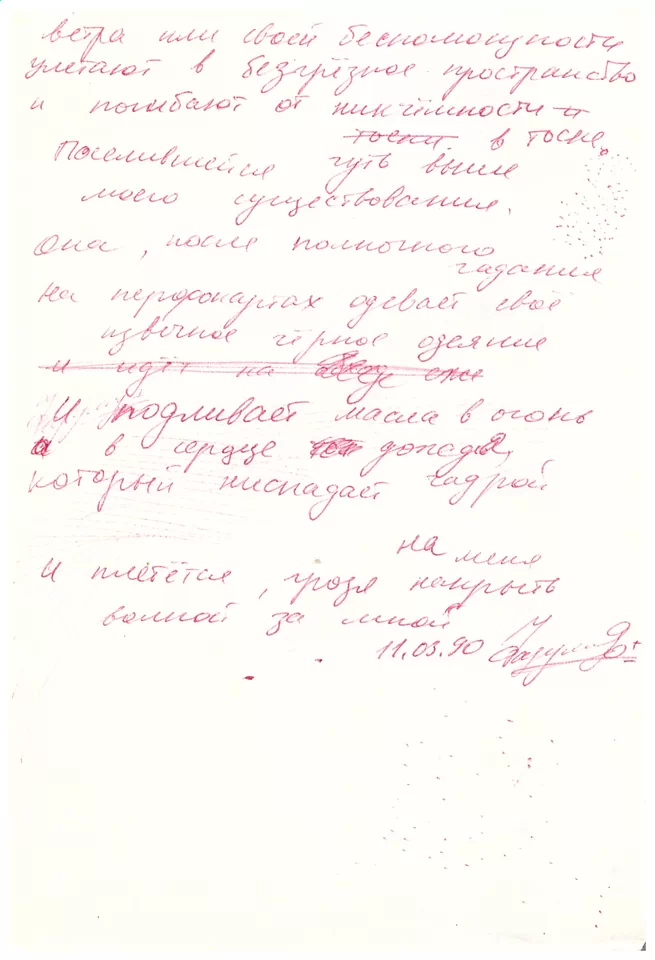 ветра или своей беспомощности
улетают в безгрёзное пространство
и погибают от никчёмности и
тоски в тоске,
Поселившейся чуть выше
моего существования.
Она, после полночного
гадания
на перфокартах одевает своё
извечное чёрное одеяние
и идёт на
И подливает масла в огонь
в сердце дождя,
который ниспадает чадрой
на меня
И плетётся, грозя накрыть
волной за мной
11.03.90